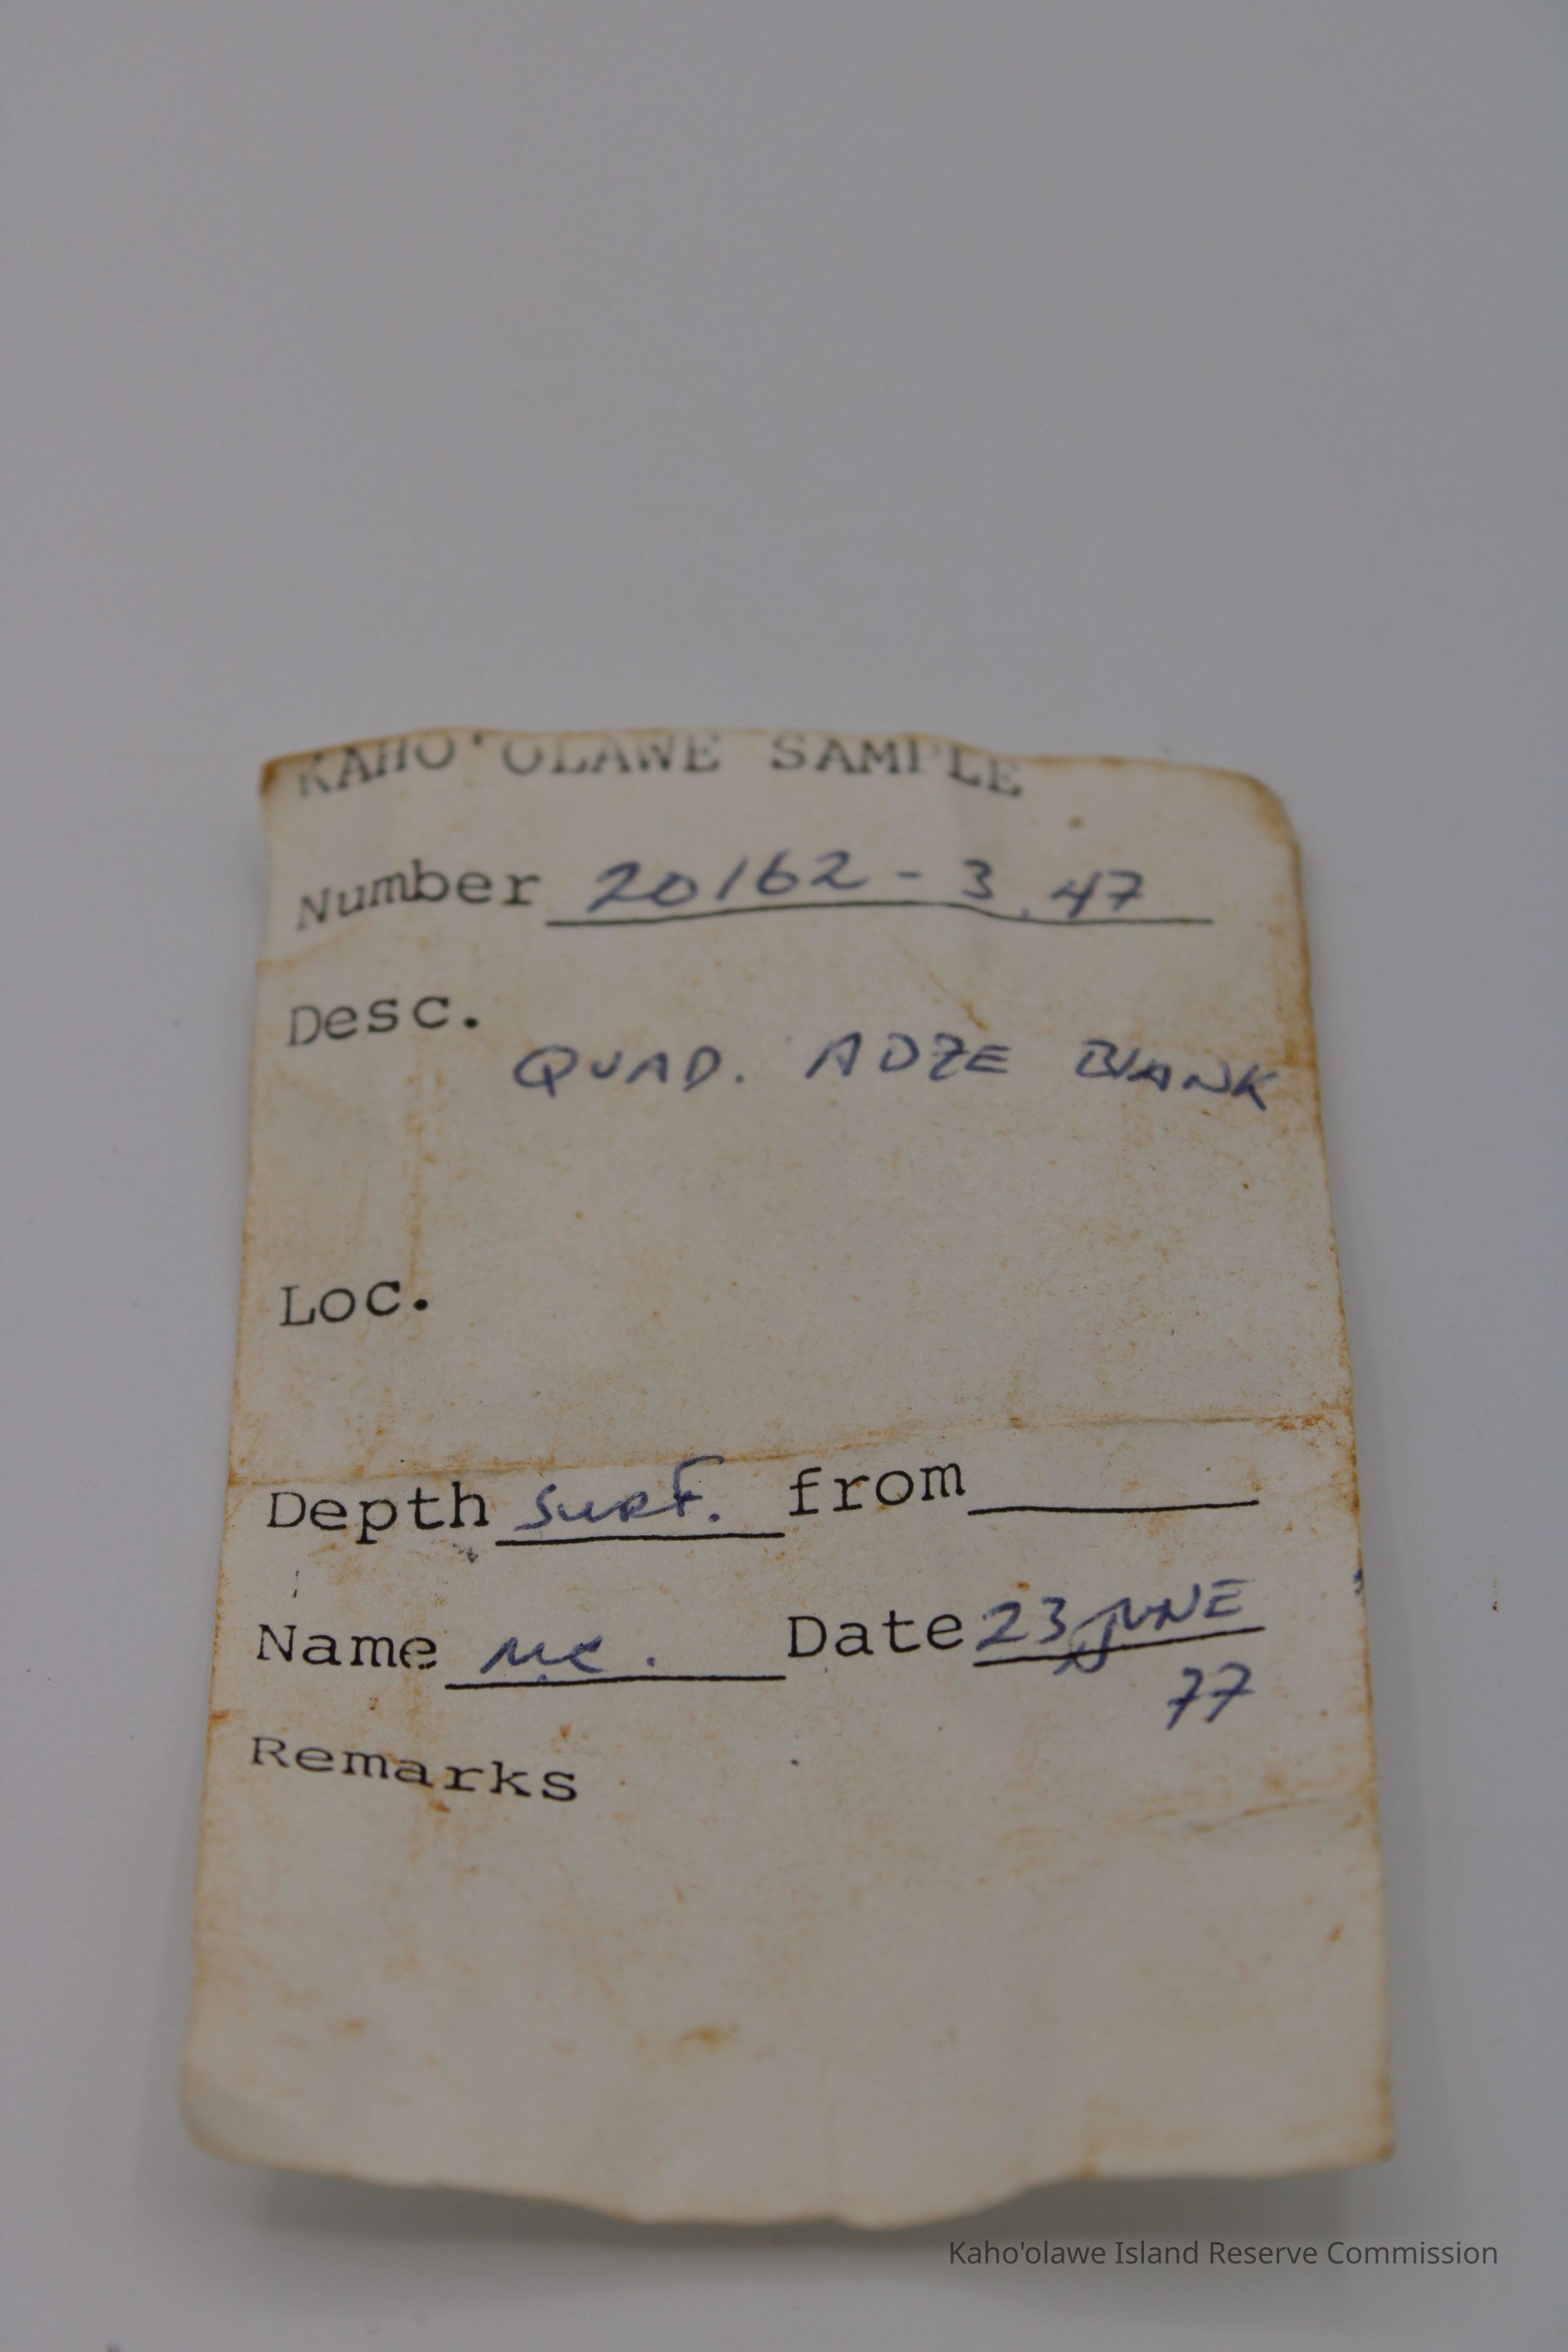 KAHO'OLAWE SAMPLE
Number 20162-3.47
Desc.
QUAD. ADZE BLANK
Loc.
Depth SURF. from
Name MC. Date 23 JUNE
77
Remarks
Kaho'olawe Island Reserve Commission